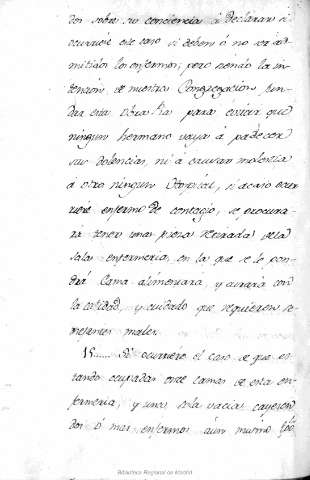 dos sobre su conciencia á declarar si
ocurriere este caso si deben ó no ser ad-
mitidos los enfermos; pero siendo la in-
tencion de nuestra Congregacion fun-
dar esta Obra Pia para evitar que
ningun hermano vaya á padecer
sus dolencias, ni á causar molestia
á otro ningun Hospital, si acaso ocur-
riere enfermo de contagio, se procura-
rá tener una pieza retirada de la
Sala enfermeria en la que se le pon-
drá Cama alimentará, y curará con
la caridad, y cuidado que requieren se-
mejantes males.
15..... Si ocurriere el caso de que es-
tando ocupadas once camas de esta en-
fermeria, y una sola vacia cayeren
dos ó mas enfermos aun mismo tpô
Biblioteca Regional de Madrid